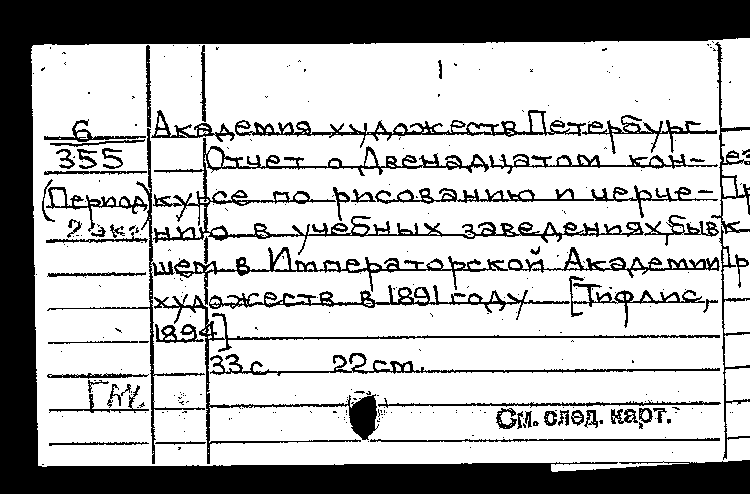 1
6
355
(Период)
2 экз
Академия художеств Петербург
Отчет о Двенадцатом кон-
курсе по рисованию и черче-
нию в учебных заведениях, быв
шем в Императорской Академии
художеств в 1891 году [Тифлис,
1894]
33 с. 22 cm.
См. след. карт.